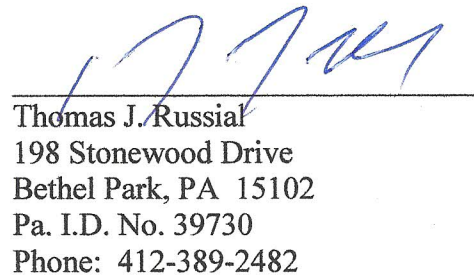 Thomas J. Russial
198 Stonewood Drive
Bethel Park, PA  15102
Pa. I.D. No. 39730
Phone:  412-389-2482